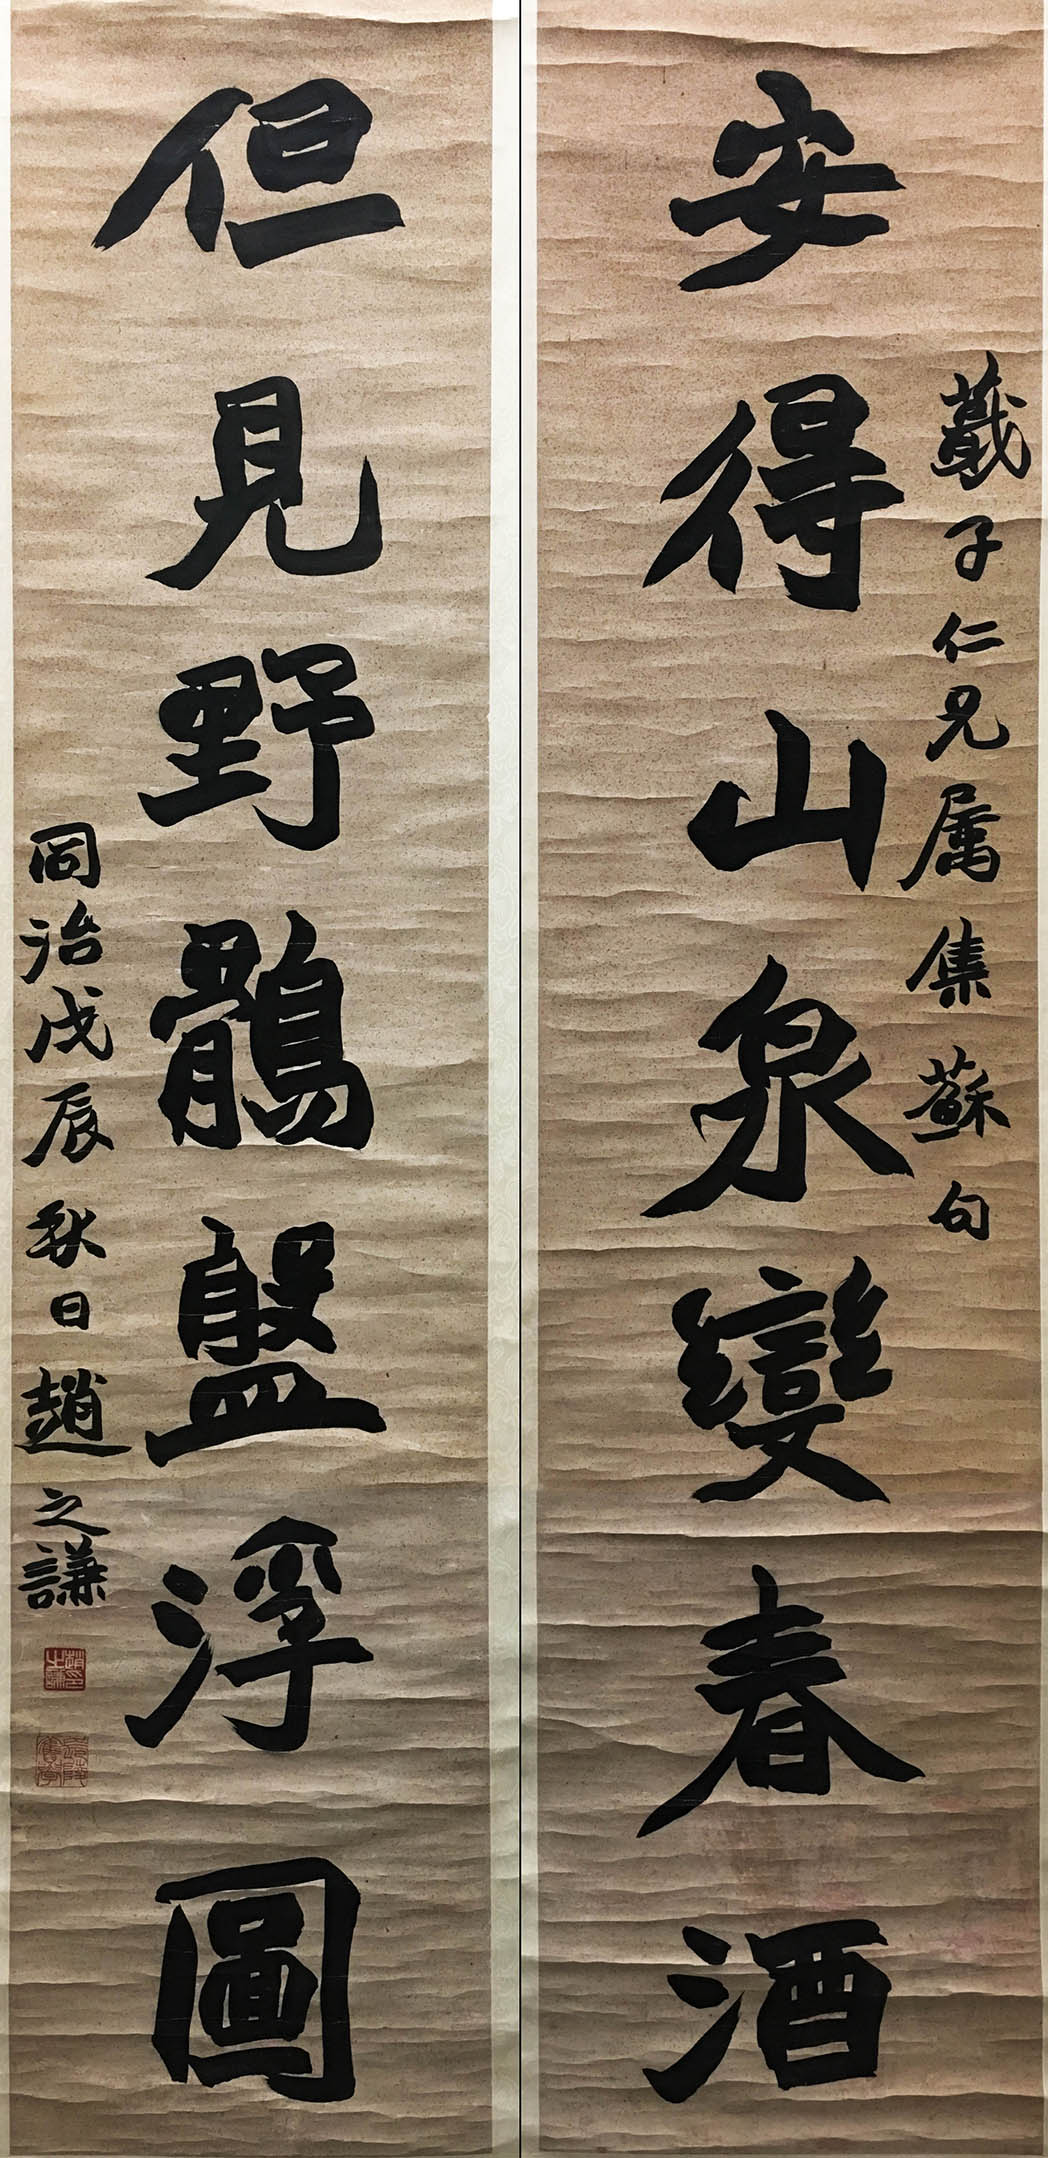 安得山泉變春酒
蕺子仁兄属集蘇句
但見野鶻盤浮圖
同治戊辰秋日趙之謙